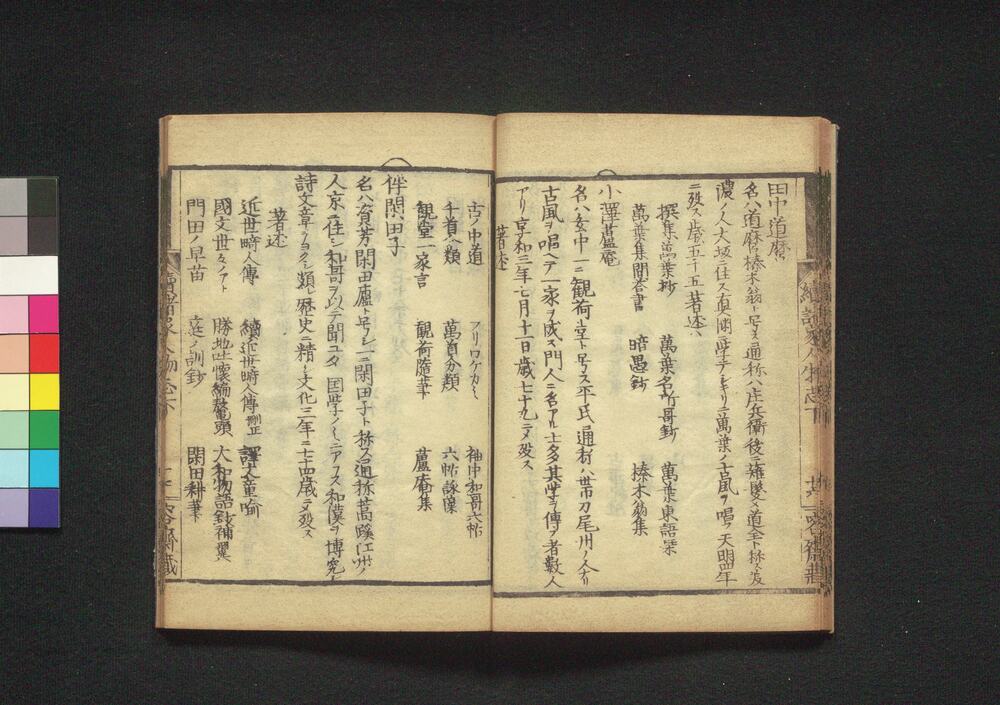 田中道麿
名ハ道麻榛木翁ト号ス通称ハ庄兵衛後ニ雍髪シ道全ト称ス美
濃ノ人大坂ニ住ス真淵ニ学テモハラ万葉ノ古風ヲ唱フ天明四年
ニ歿ス歳五十五著述ハ
撰集萬葉抄 萬葉名所哥鈔 萬葉東語栞
萬葉集問答書 暗愚鈔 榛木翁集
小澤蘆庵
名ハ玄中一ニ観荷堂ト号ス平氏通称ハ帯刀尾州ノ人ナリ
古風ヲ唱ヘテ一家ヲ成ス門人ニ名アル士多其学ヲ傳フ者数人
アリ享和三年七月十一日歳七十九ニメ歿ス
著述
古ノ中道 フリワケカミ 袖中和哥六帖
千首部類 萬首分類 六帖詠藻
観堂一家言 観荷随筆 蘆庵集
伴閑田子
名ハ資芳閑田廬ト号シ一ニ閑田子ト称ス通称蒿蹊江州ノ
人京ニ住シ和哥ヲ以テ聞ユタ国学ノミニアラス和漢ヲ博究シ
詩文章ヲヨクシ類ヒ歴史ニ精シ文化三年ニ七十四歳ニテ歿ス
著述
近世畸人傳 續近世畸人傳刪正 譯文童喩
國文世々ノアト 勝地吐懐編鼇頭 大和物語鈔補翼
門田ノ早苗 庭ノ訓鈔 閑田耕筆